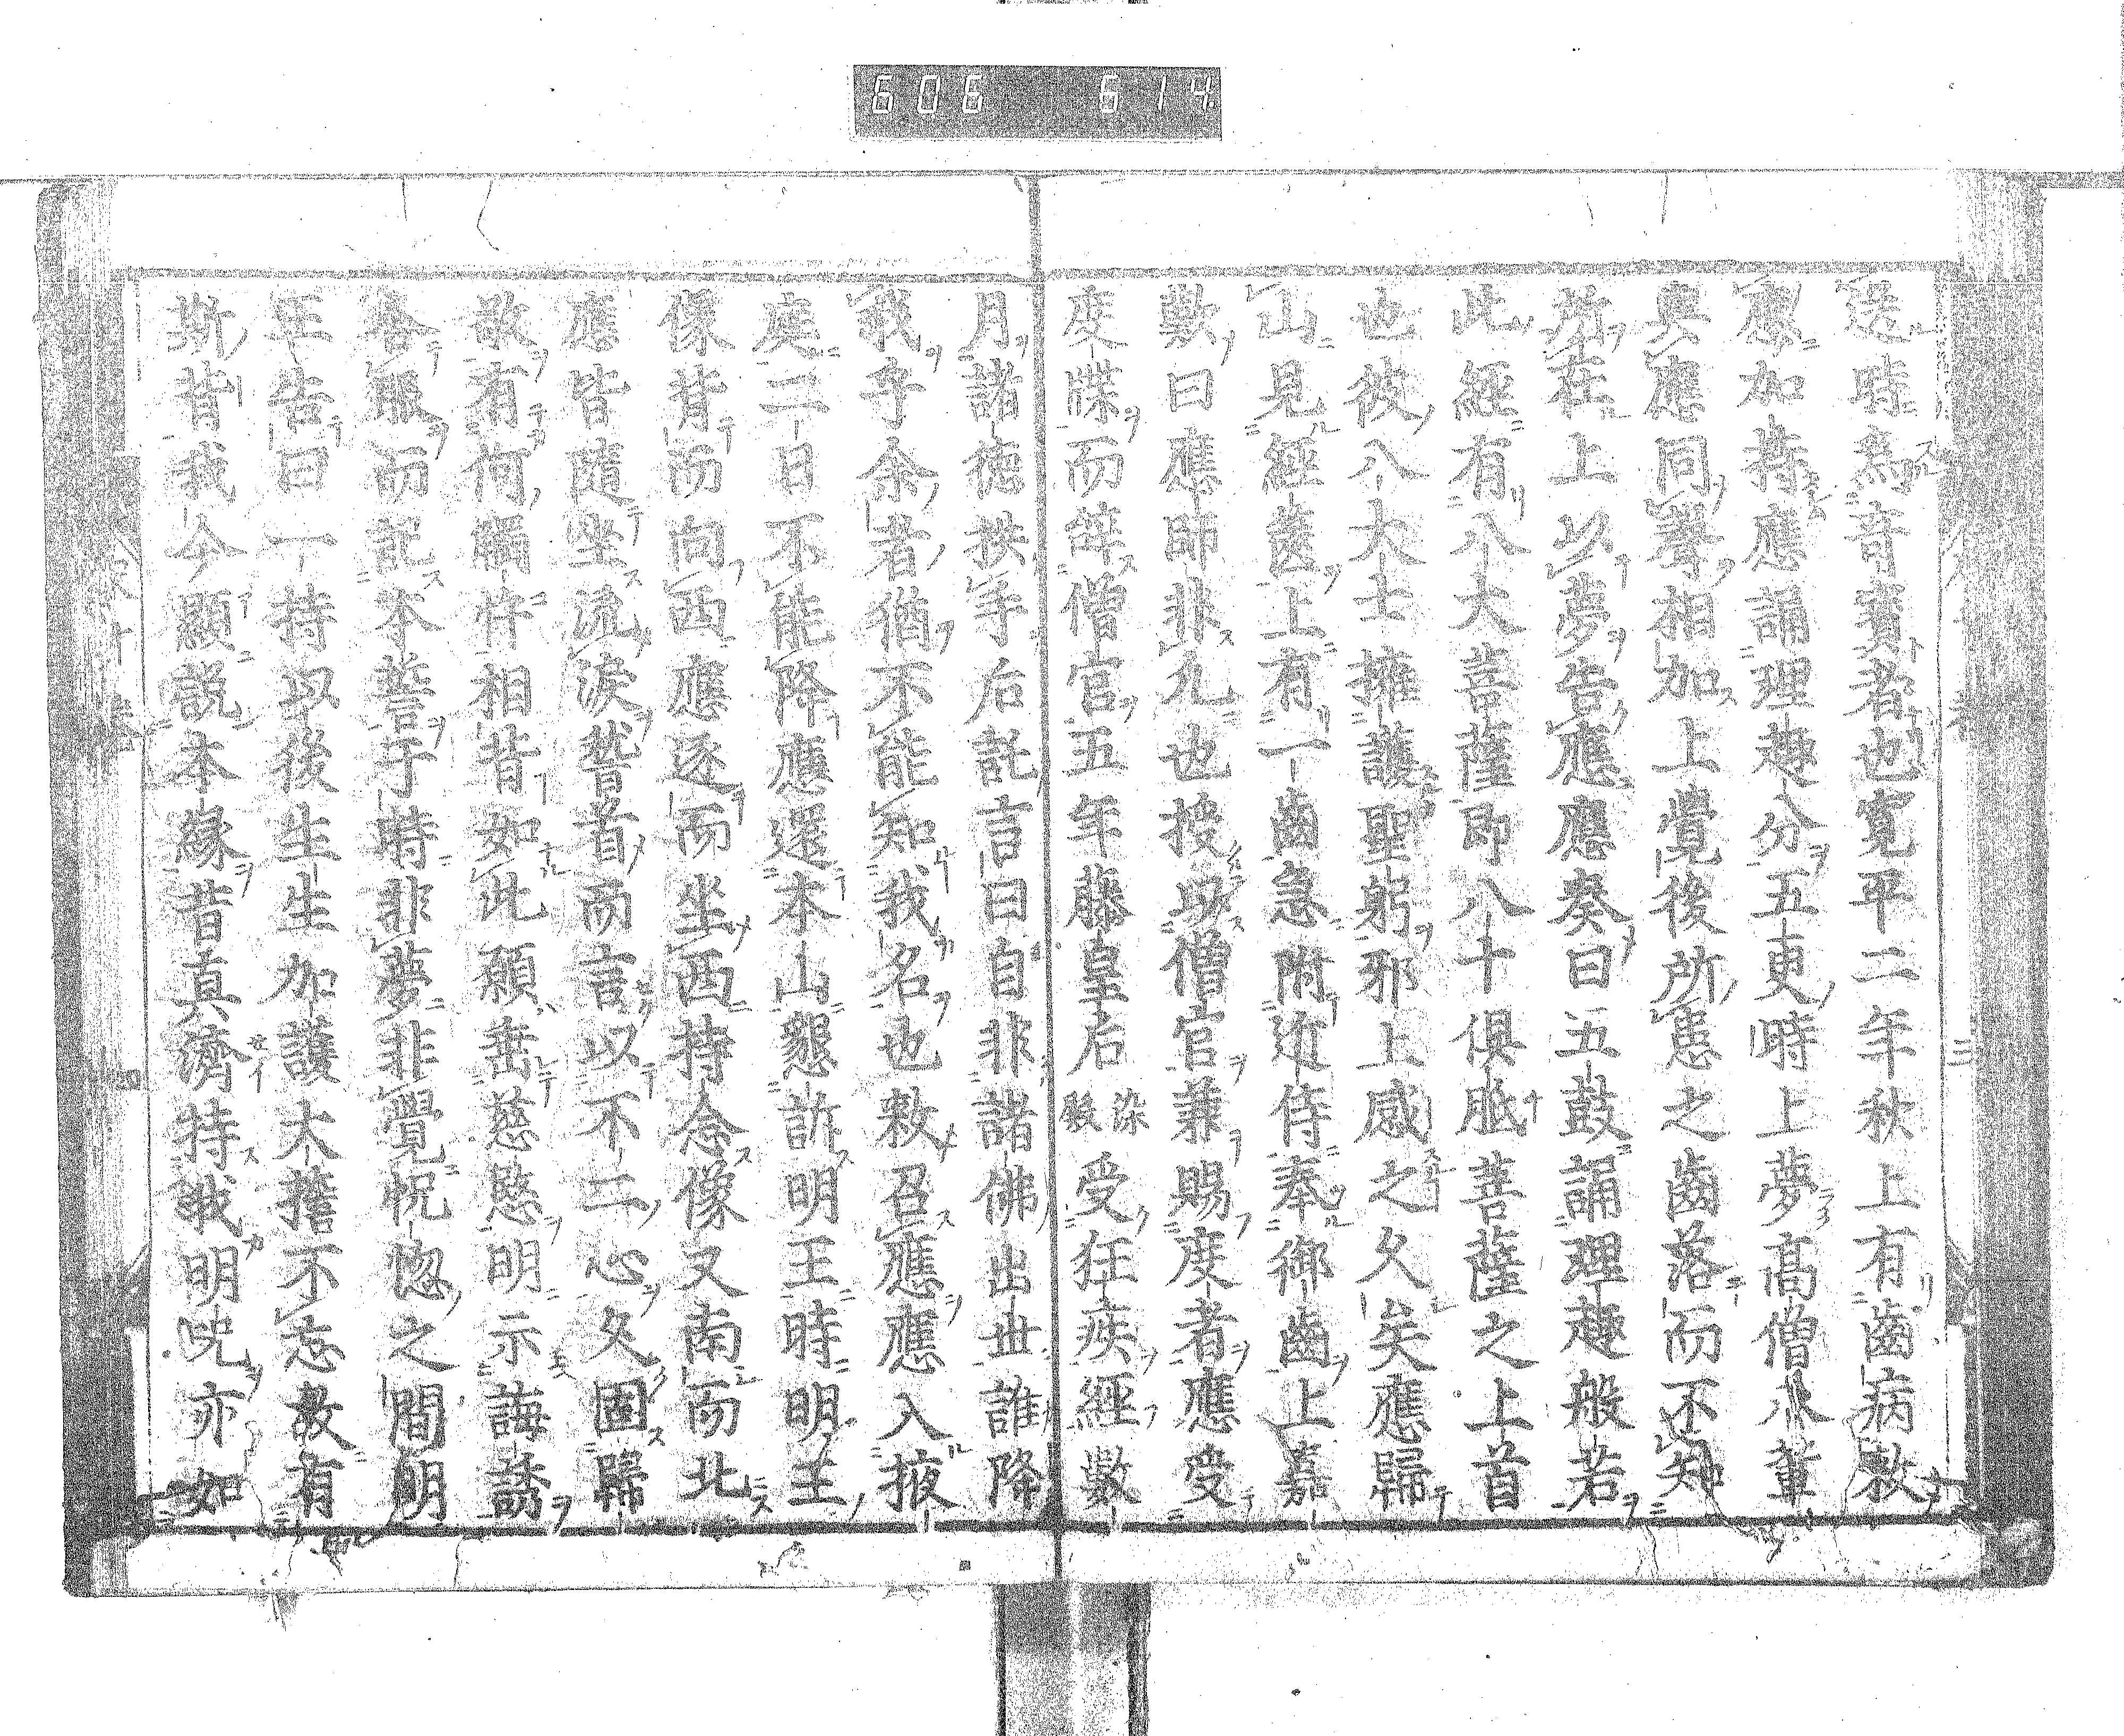 606 614
送時為奇賓者也寛平二年秋上有齒病敕
應加持應誦理趣分五更時上夢高僧八輩
與應同聲相加上覺後所患之齒落而不知
所在上以夢告應應奏曰五鼓誦理趣般若
此經有八大菩薩即八十俱胝菩薩之上首
也彼八大士擁護聖躬邪上感之久矣應歸
山見經篋上有一齒急附近侍奉御齒上嘉
歎曰應師非凡也授以僧官兼賜度者應受
度牒而辭僧官五年藤皇后染殿受狂疾經數
月諸德拱手后託言曰自非諸佛出世誰降
我乎余者猶不能知我名也敕召應應入掖
庭二日不能降應還本山懇訴明王時明王
像背而向西應逐而坐西持念像又南而北
應皆隨坐流淚稽首而言以不二心久固歸
敬有何觸忤相背如此願垂慈愍明示誨誘
合眼而記本誓于時非夢非覺怳惚之間明
王告曰一持以後生生加護大擔不忘故有
斯背我今顯說本緣昔真濟持我明咒亦如